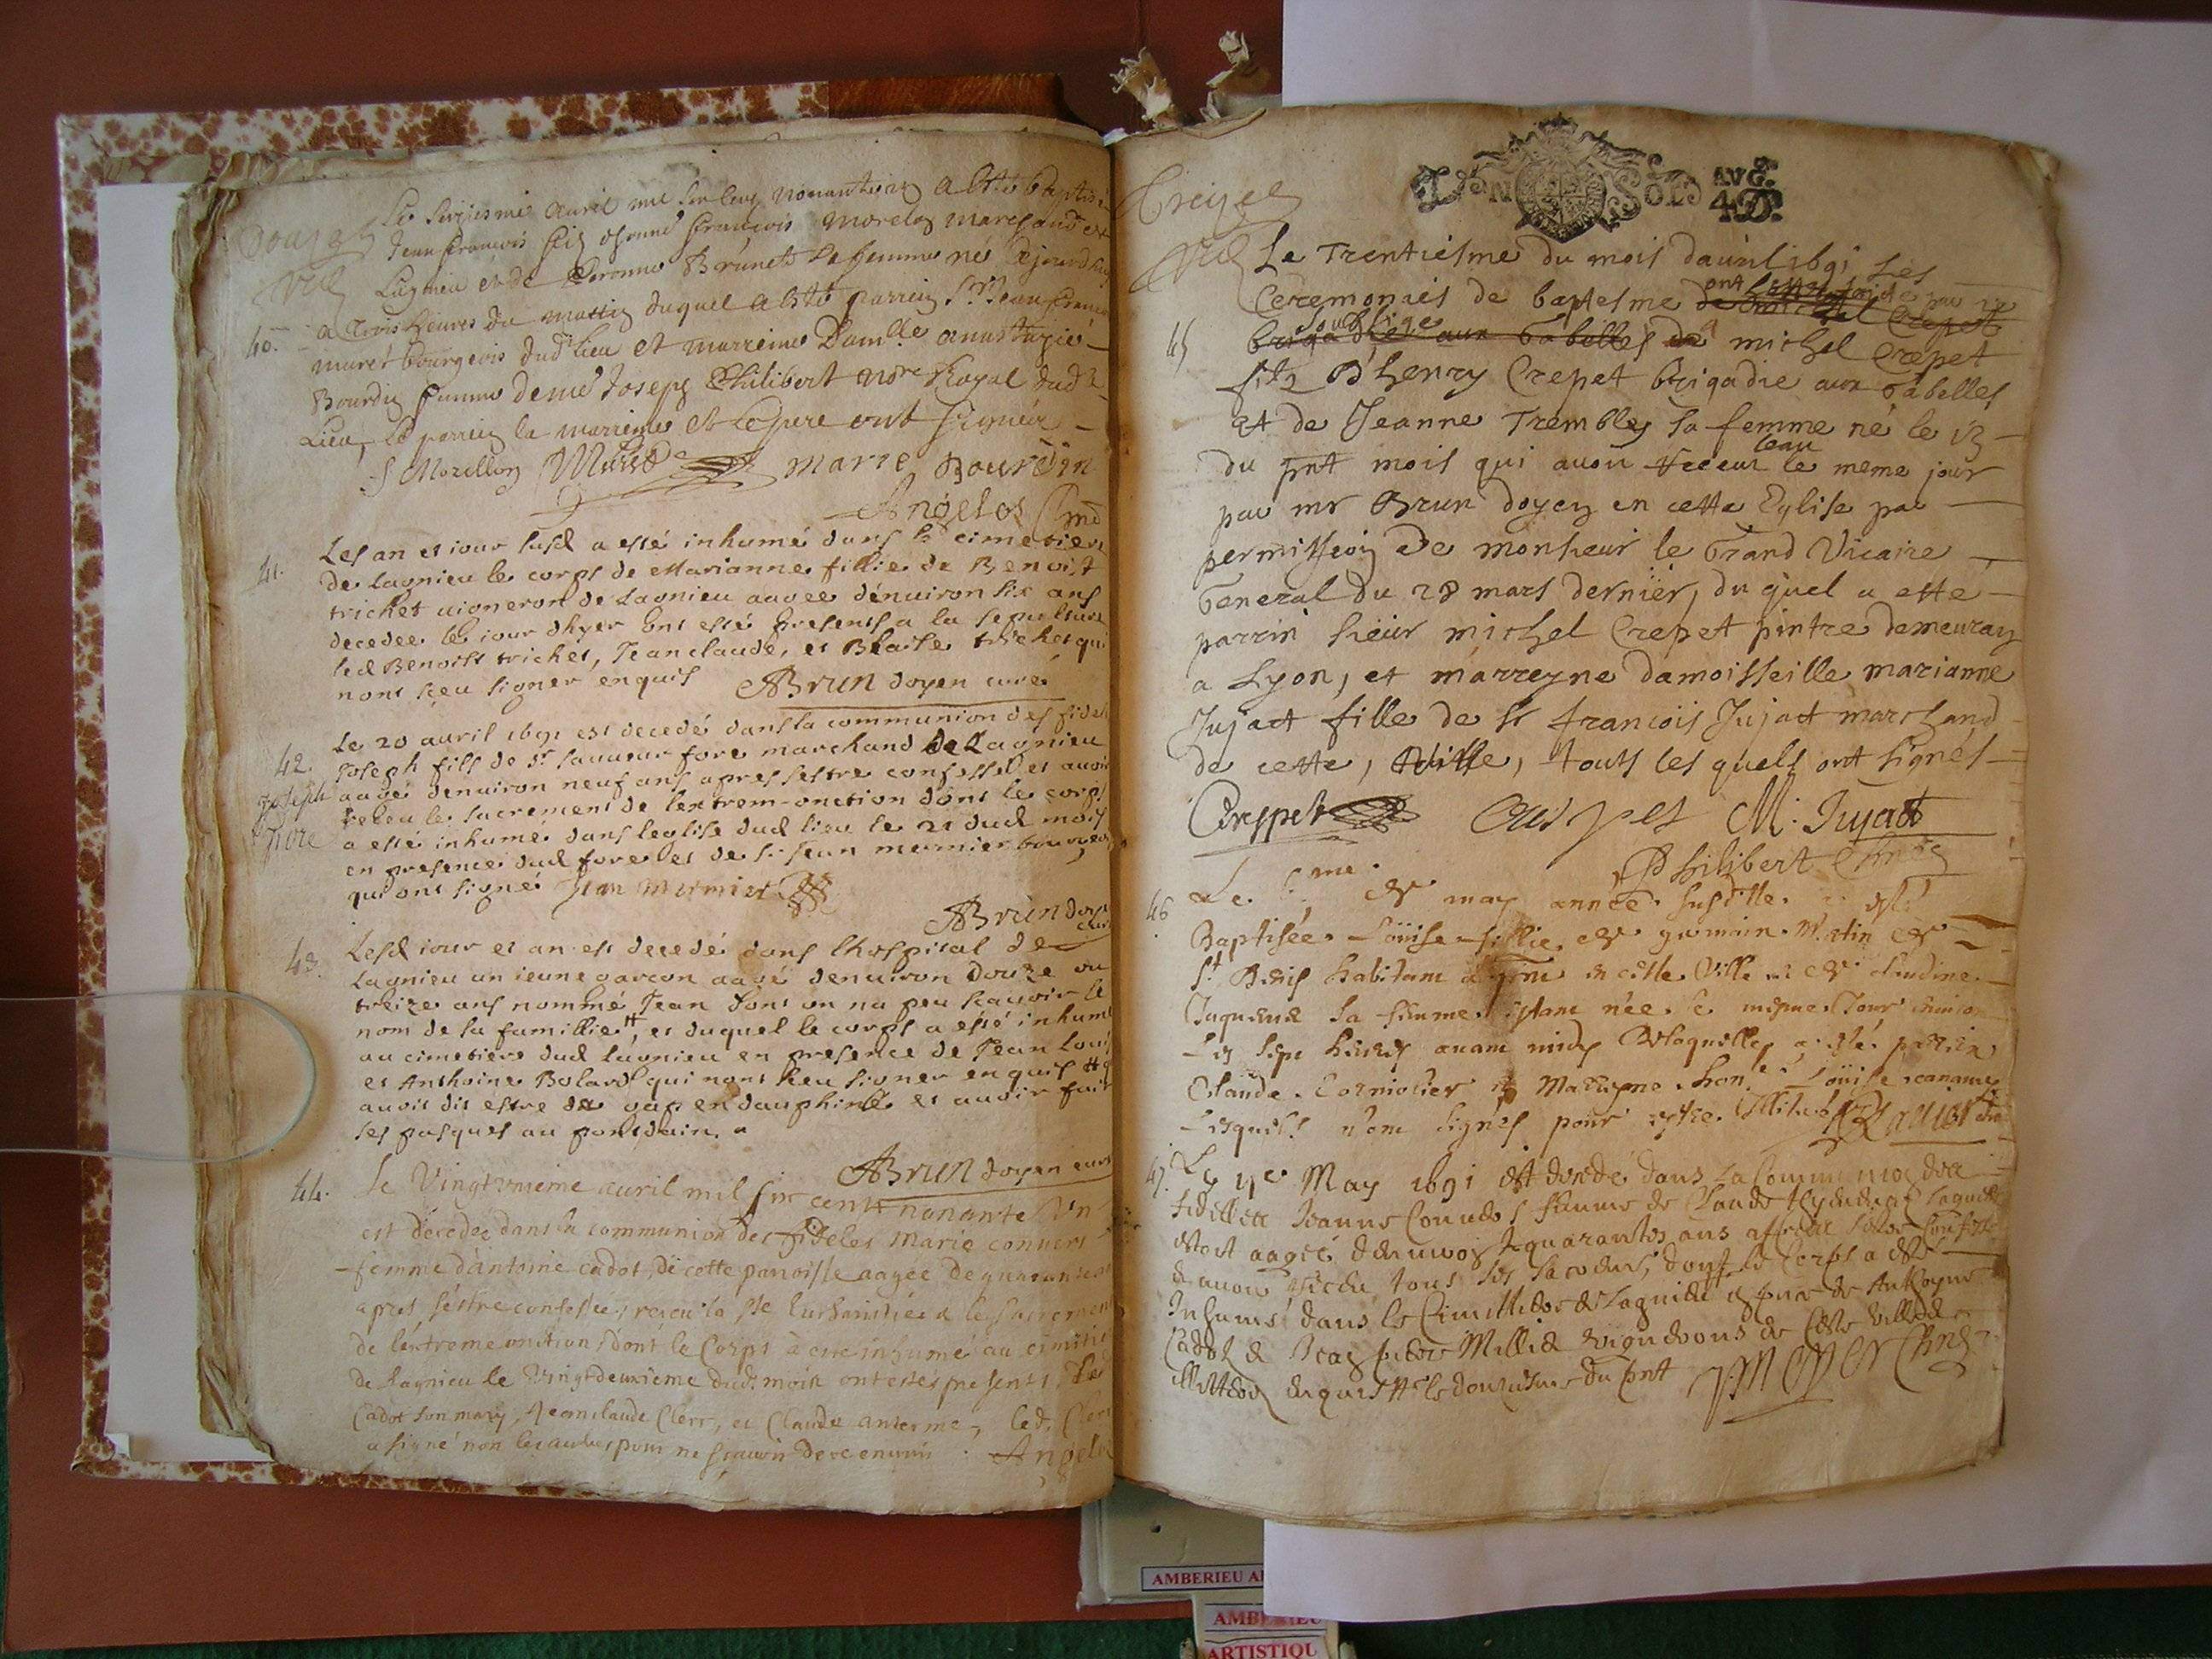 Le seiziesme auril mil six cens nonante un a esté baptisé
Jean francois fils
francois Morelon marchand
Lagnieu et de Brunet sa femme né
a trois heures du matin duquel a esté parrein Sr Jean
muret bourgeois dud lieu et marreine Damlle anastazie
Bourdin femme de me Joseph Philibert nore Royal dud
Lieu, le parrein la marreine et le pere ont signéz
40.
S Morellon Muret marie Bourdin
Angelot
41.
Les an et iour susd a esté inhumé dans le cimetiere
de lagnieu le corps de Marianne fillie de Benoist
trichet uigneron de Lagnieu aagee denuiron six ans
decedee le iour dhyer ont esté presents a la sepulture
led Benoist trichet, Jean claude, et Blaise trichet qui
nont sceu signer enquis ABrun doyen curé
42.
Joseph
fore
Le 20 auril 1691 est decedé dans la communion des fideles
Joseph fils de sr sauueur fore marchand de Lagnieu
aagé denuiron neuf ans apres sestre confessé et auoir
receu le sacrement de lextrem-onction dont le corps
a esté inhumé dans leglise dud lieu le 21 dud mois
en presence dud fore et de sr Jean mermier bourgeois
qui ont signé Jean mermier
ABrun doyen
curé
43.
Lesd iour et an est decedé dans lhospital de
Lagnieu un ieune garcon aagé denuiron douze ou
treize ans nommé Jean dont on na peu scauoir le
nom de sa famillie #, et duquel le corps a esté inhumé
au cimetiere dud lagnieu en presence de Jean Louis
et Anthoine Bolard qui nont sceu signer enquis #
auoit dit estre de gap en dauphiné et auoir fait
ses pasques au pont dain.
ABrun doyen curé
44.
Le Vingt unieme auril mil six cents nonante Un
est décedée dans la communion des fideles Marie conuers
femme dantoine cadot, de cette paroisse aagée de quarante
apres sestre confessée, receu la Ste Eucharistie & le sacrement
de lextreme onction, dont le Corps à esté inhumé au cimitiere
de Lagnieu le Vingt deuxieme dud. mois ont estes presents
Cadot son mary, Jean claude Clerc, et Claude anterme, led. Clerc
a signé non les autres pour ne scauoir de ce enquis. Angelot
UN SOL AVG.
4 D.
45
Le Trentiesme du mois dauril 1691 les
Ceremonies de baptesme de michel Crepet
ont estes faites par
Brigadier aux Gabelles de a michel Crepet
soussigné
fils D'henry Crepet brigadie aux Gabelles
et de Jeanne Trembley sa femme né le 13
du pnt mois qui auoit receu leau le meme jour
par mr Brun doyen en cette Eglise par
permission de monsieur le Grand Vicaire
General du 28 mars dernier, du quel a esté
parrin sieur michel Crepet pintre demeurant
a Lyon, et marreyne damoisseille marianne
Jujat fille de sr francois Jujat marchand
de cette, Ville, touts les quels ont signés
Crespet Crespet M. Jujat
Philibert
46
Le me de may année susditte a esté
Baptisée Loüise fillie de germain Martin de
St Denis habitant a present en cette Ville et de claudine
Juquene sa femme estant née le mesme Jour enuiron
les sept heures auant midy De laquelle a esté parrin
Claude Cormorier et Marreyne hon.e Loüise
Lesquels n'ont signés pour estre Illiterés
47.
Le 11e May 1691 est decedé dans la Communion des
fidelles Jeanne femme de Claude laquelle
estoit aagée denuiron quarante ans apres sestre confesse
& auoir receu tous ses sacrens, dont le Corps a esté
Inhumé dans le Cimittiere de Lagnieu en pnce de Anthoyne
Cadot & vignerons de ceste ville
enquis le douziesme du pnt
AMBERIEU
AMBERIEU
ARTISTIQU